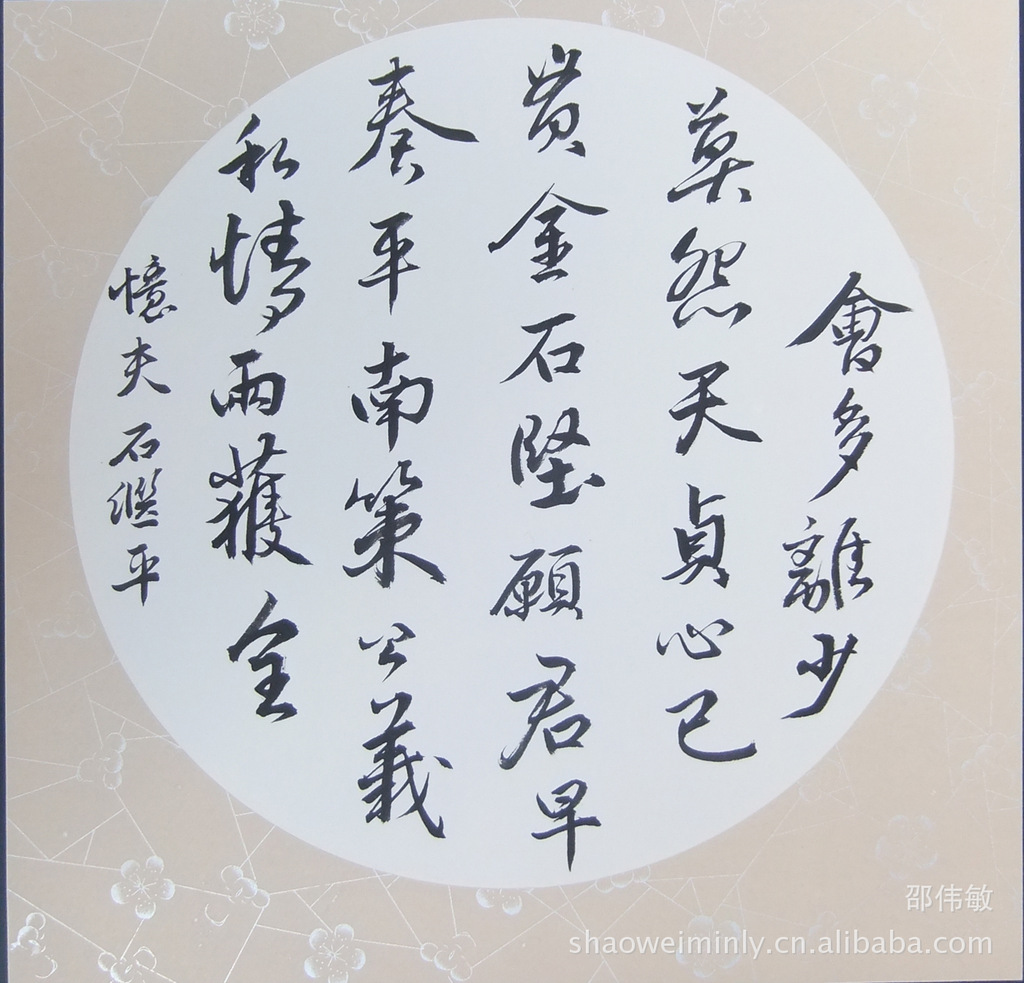 會多離少
莫怨天貞心已
貫金石堅願君早
奏平南策公義
私情兩獲全
憶夫石繼平
邵伟敏
shaoweiminly.cn.alibaba.com